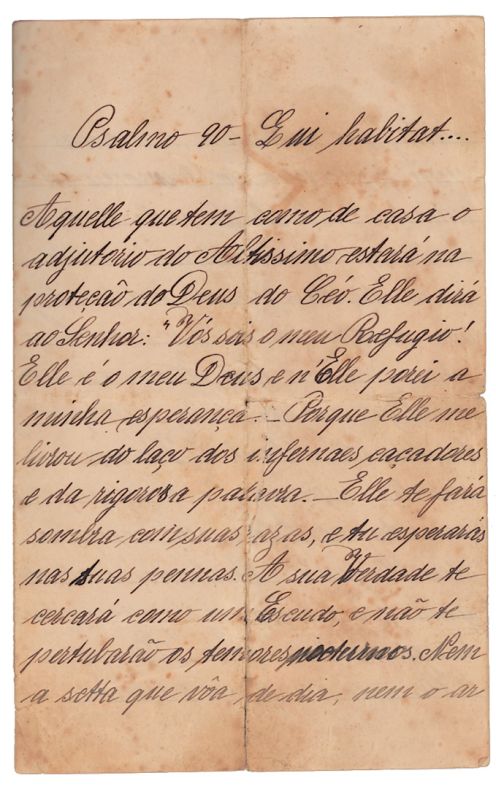 Psalmo 90 - Qui habitat....
Aquelle que tem como de casa o
adjutorio do Altissimo estará na
proteção do Deus do Céo. Elle dirá
ao Senhor: "Vós sois o meu Refugio!
Elle é o meu Deus e n'Elle porei a
minha esperança. - Porque Elle me
livrou do laço dos infernaes caçadores
e da rigorosa palavra. - Elle te fará
sombra com suas azas, e tu esperarás
nas suas pennas. A sua Verdade te
cercará como um Escudo, e não te
pertubarão os temores nocturnos. Nem
a setta que vôa de dia, nem o ar